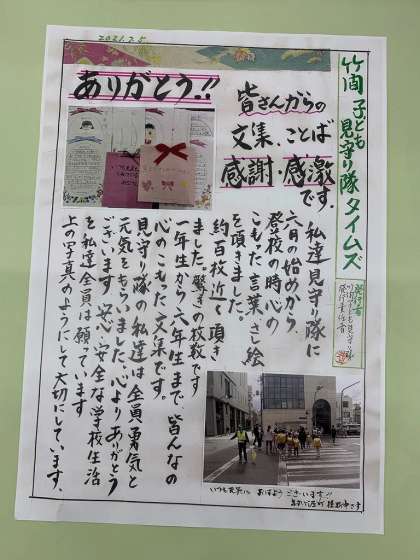 2021.7.5
竹間子ども見守り隊タイムズ
発行者
竹間子ども見守り隊
発行責任者
皆さんからの
文集、ことば
感謝・感激です。
ありがとう!!
私達見守り隊に
六月の始めから
登校の時、心の
こもった言葉、さし絵
を頂きました。
約百枚近く頂き
ました。驚きの枚数です
一年生から六年生まで、皆んなの
心のこもった文集です。
見守り隊の私達は全員、勇気と
元気をもらいました。心よりありがとう
ございます 安心・安全な学校生活
を私達全員は願ってます
上の写真のようにして大切にしています。
いつも元気に おはようございます!!